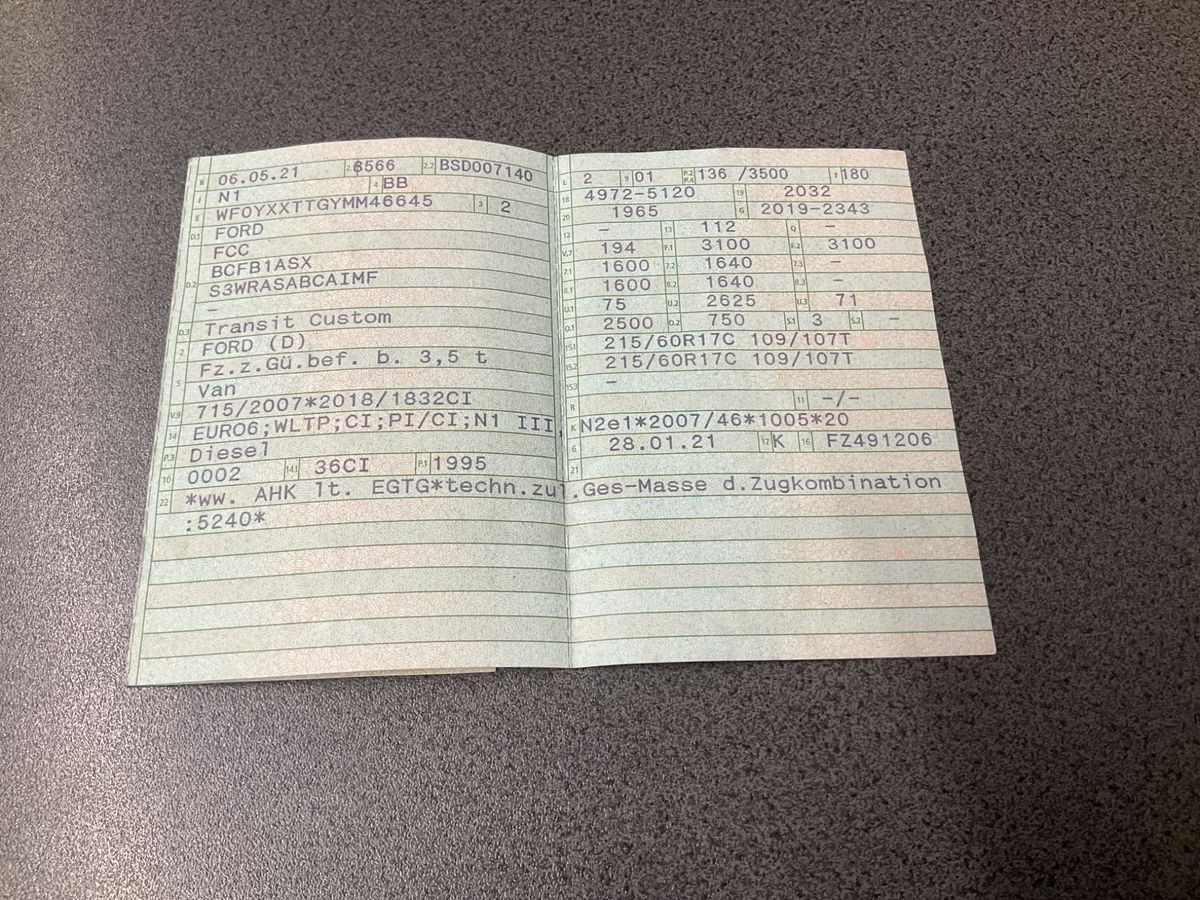 B 06.05.21 2.1 8566 2.2 BSD007140
J N1 4 BB
E WF0YXXTTGYMM46645 3 2
D.1 FORD
FCC
BCFB1ASX
D.2 S3WRASABCAIMF
–
D.3 Transit Custom
2 FORD (D)
Fz.z.Gü.bef. b. 3,5 t
5 Van
V.9 715/2007*2018/1832CI
14 EURO6;WLTP;CI;PI/CI;N1 III,
P.3 Diesel
10 0002 14.1 36CI P.1 1995
22 *ww. AHK lt. EGTG*techn.zul.Ges-Masse d.Zugkombination
:5240*
L 2 9 01 P.2 P.4 136 /3500 T 180
18 4972-5120 19 2032
20 1965 G 2019-2343
12 – 13 112 Q –
V.7 194 F.1 3100 F.2 3100
7.1 1600 7.2 1640 7.3 –
8.1 1600 8.2 1640 8.3 –
U.1 75 U.2 2625 U.3 71
O.1 2500 O.2 750 S.1 3 S.2 –
15.1 215/60R17C 109/107T
15.2 215/60R17C 109/107T
15.3 –
R 11 –/–
K N2e1*2007/46*1005*20
6 28.01.21 17 K 16 FZ491206
21